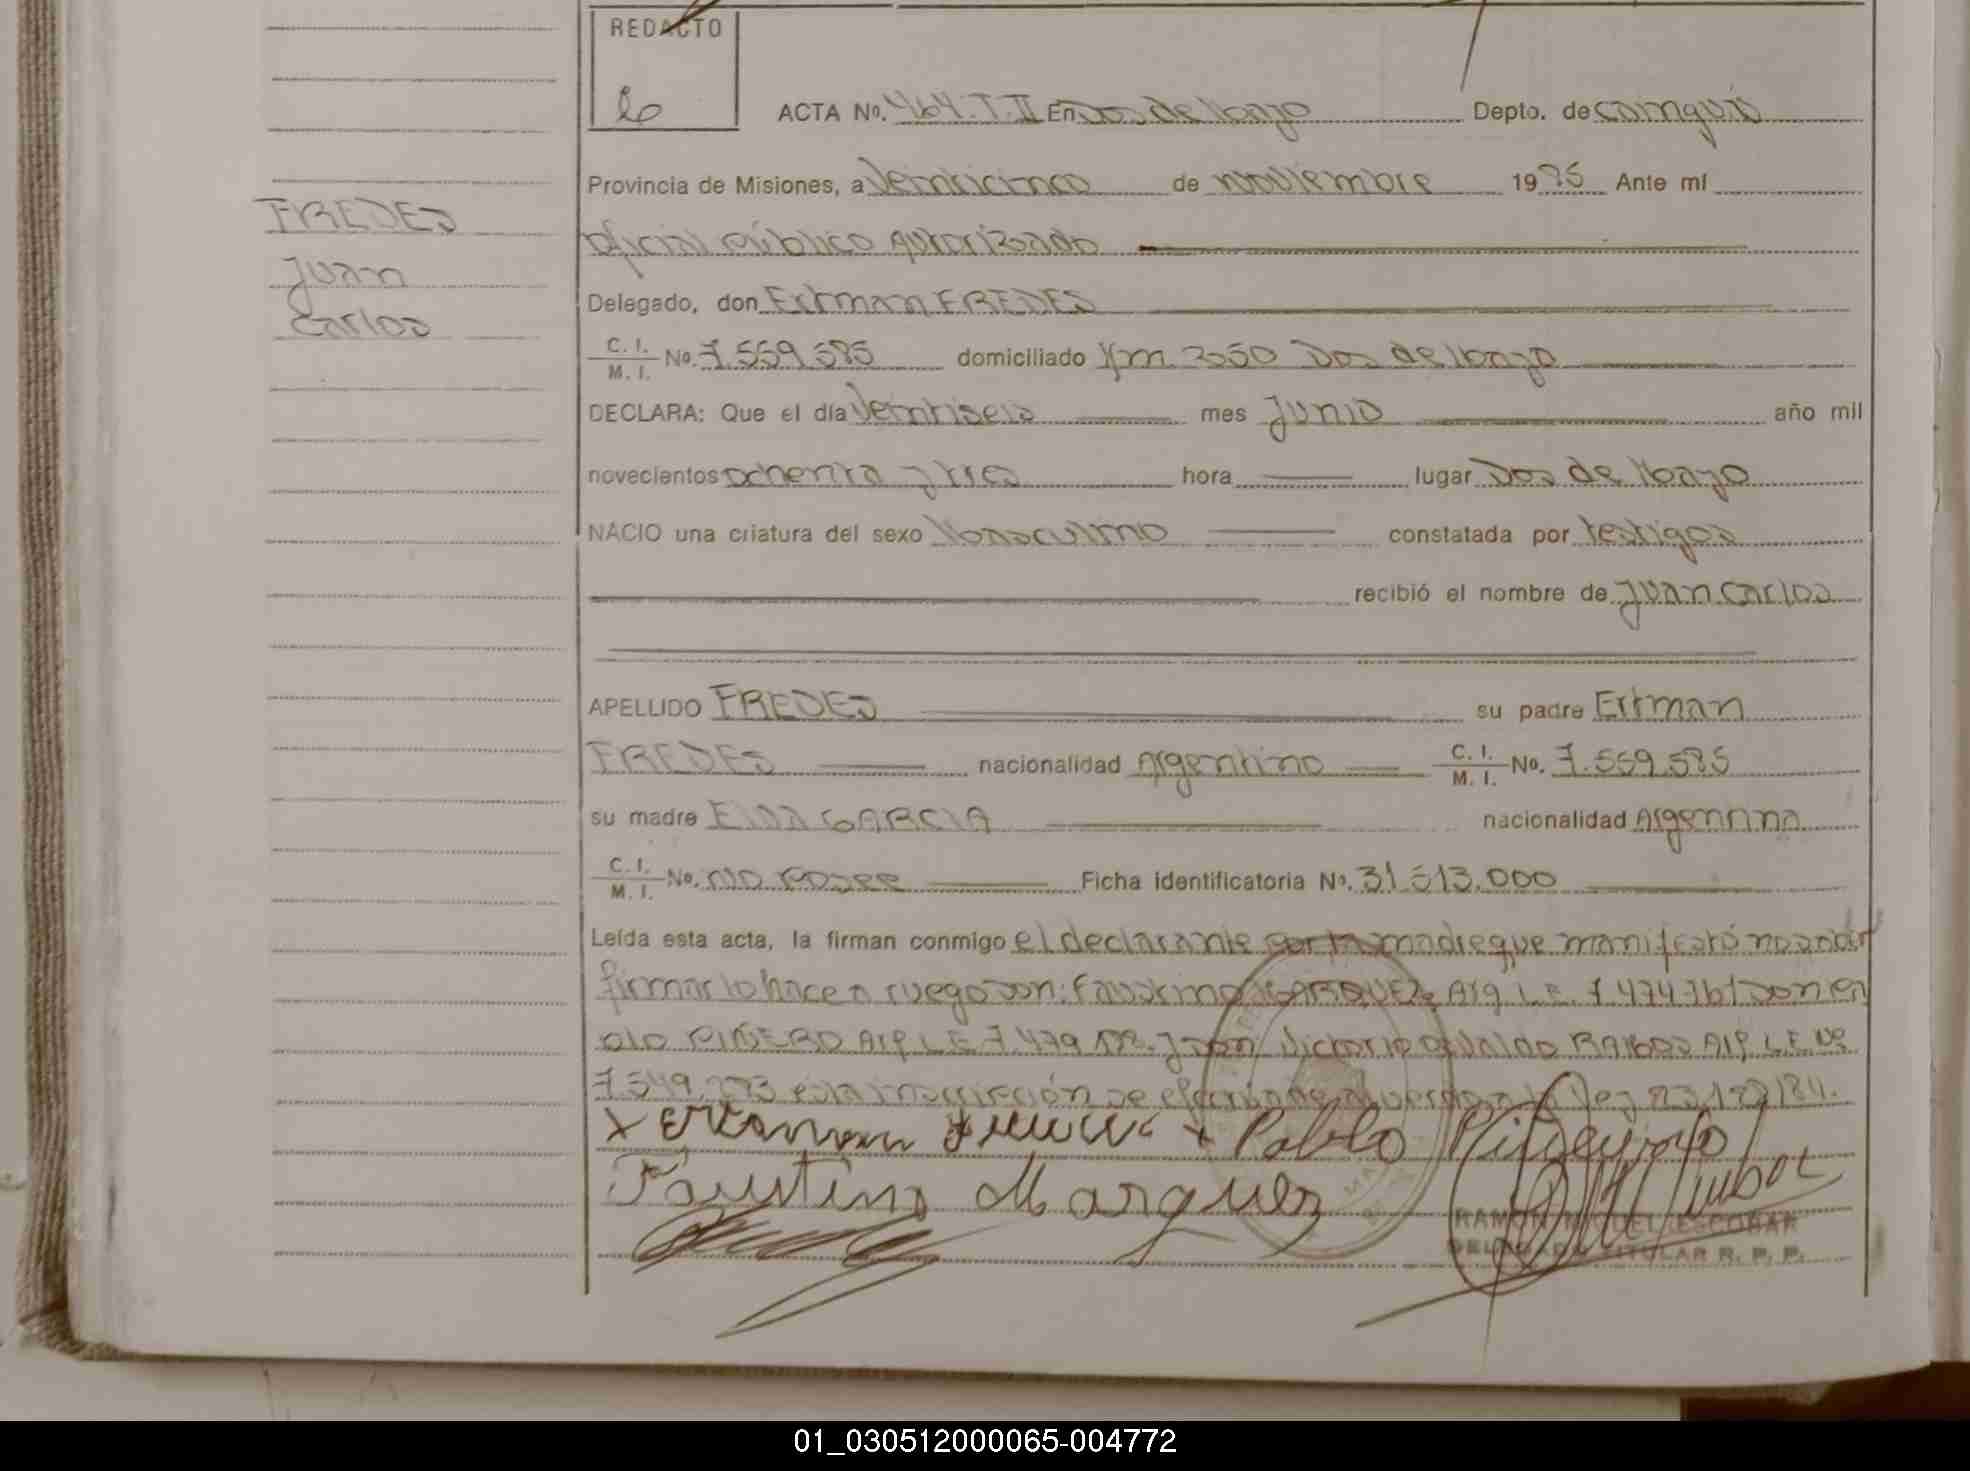 REDACTO
ACTA No. 464. T. II En Dos de Mayo Depto. de Cainguás
Provincia de Misiones, a Veinticinco de noviembre 19 85 Ante mí
oficial público Autorizado
FREDES
Juan
Carlos
Delegado, don Ertman FREDES
C. I. M. I. No. 7.559.585 domiciliado Km. 2050 Dos de Mayo
DECLARA: Que el día Veintiseis mes Junio año mil
novecientos ochenta y tres hora lugar Dos de Mayo
NACIO una criatura del sexo Masculino constatada por testigos
recibió el nombre de Juan Carlos
APELLIDO FREDES su padre Ertman
FREDES nacionalidad Argentino C. I. M. I. No. 7.559.585
su madre Elda GARCIA nacionalidad Argentina
C. I. M. I. No. no posee Ficha identificatoria No. 31.513.000
Leída esta acta, la firman conmigo el declarante por la madre que manifestó no saber
firmar lo hace a ruego don: Faustino MARQUEZ, Arg. L.E. 7.474.761 don
PIÑEIRO Arg L.E. 7.479 y don Victorio Osvaldo RAMOS Arg. L.E. Nº
7.549.293 esta inscripción se efectúa de acuerdo a la ley 23.182/84.
Pablo Piñeyro
Faustino Marquez
RAMON MIGUEL ESCOBAR
DELEGADO TITULAR R. P. P.
01_030512000065-004772